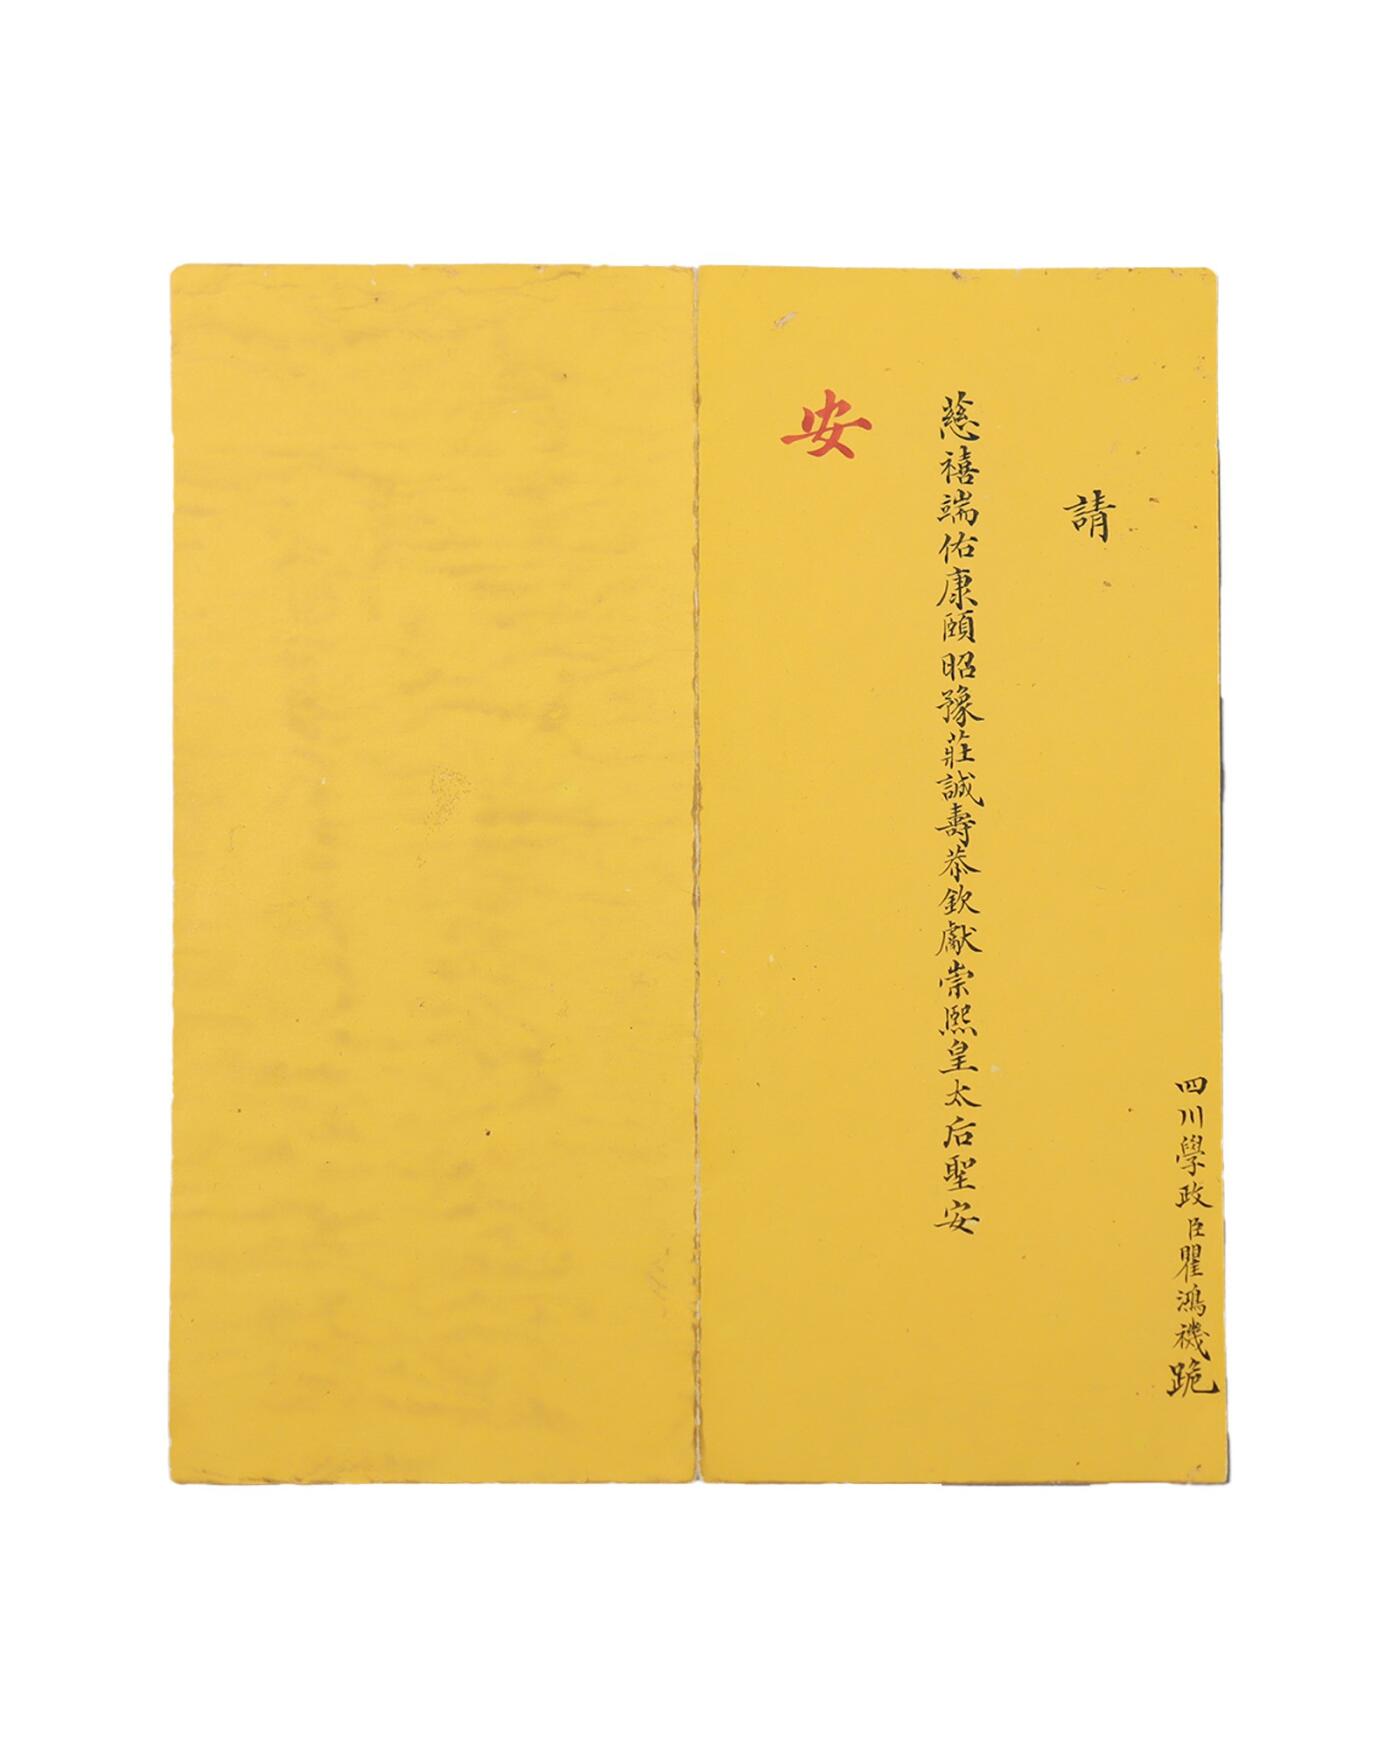 四川學政臣瞿鴻禨跪
請
慈禧端佑康頤昭豫莊誠壽恭欽獻崇熙皇太后聖安
安